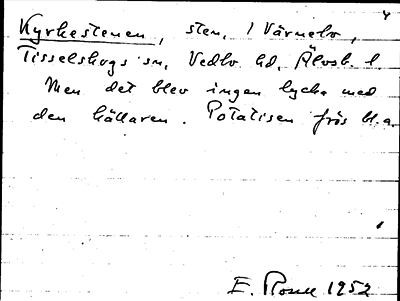 4
Kyrkestenen, sten, / Värnebo,
Tisselskogs sn, Vedbo hd, Älvsb. l.
Men det blev ingen lycka med
den källaren. Potatisen frös bl.a.
E. Rosell 1952